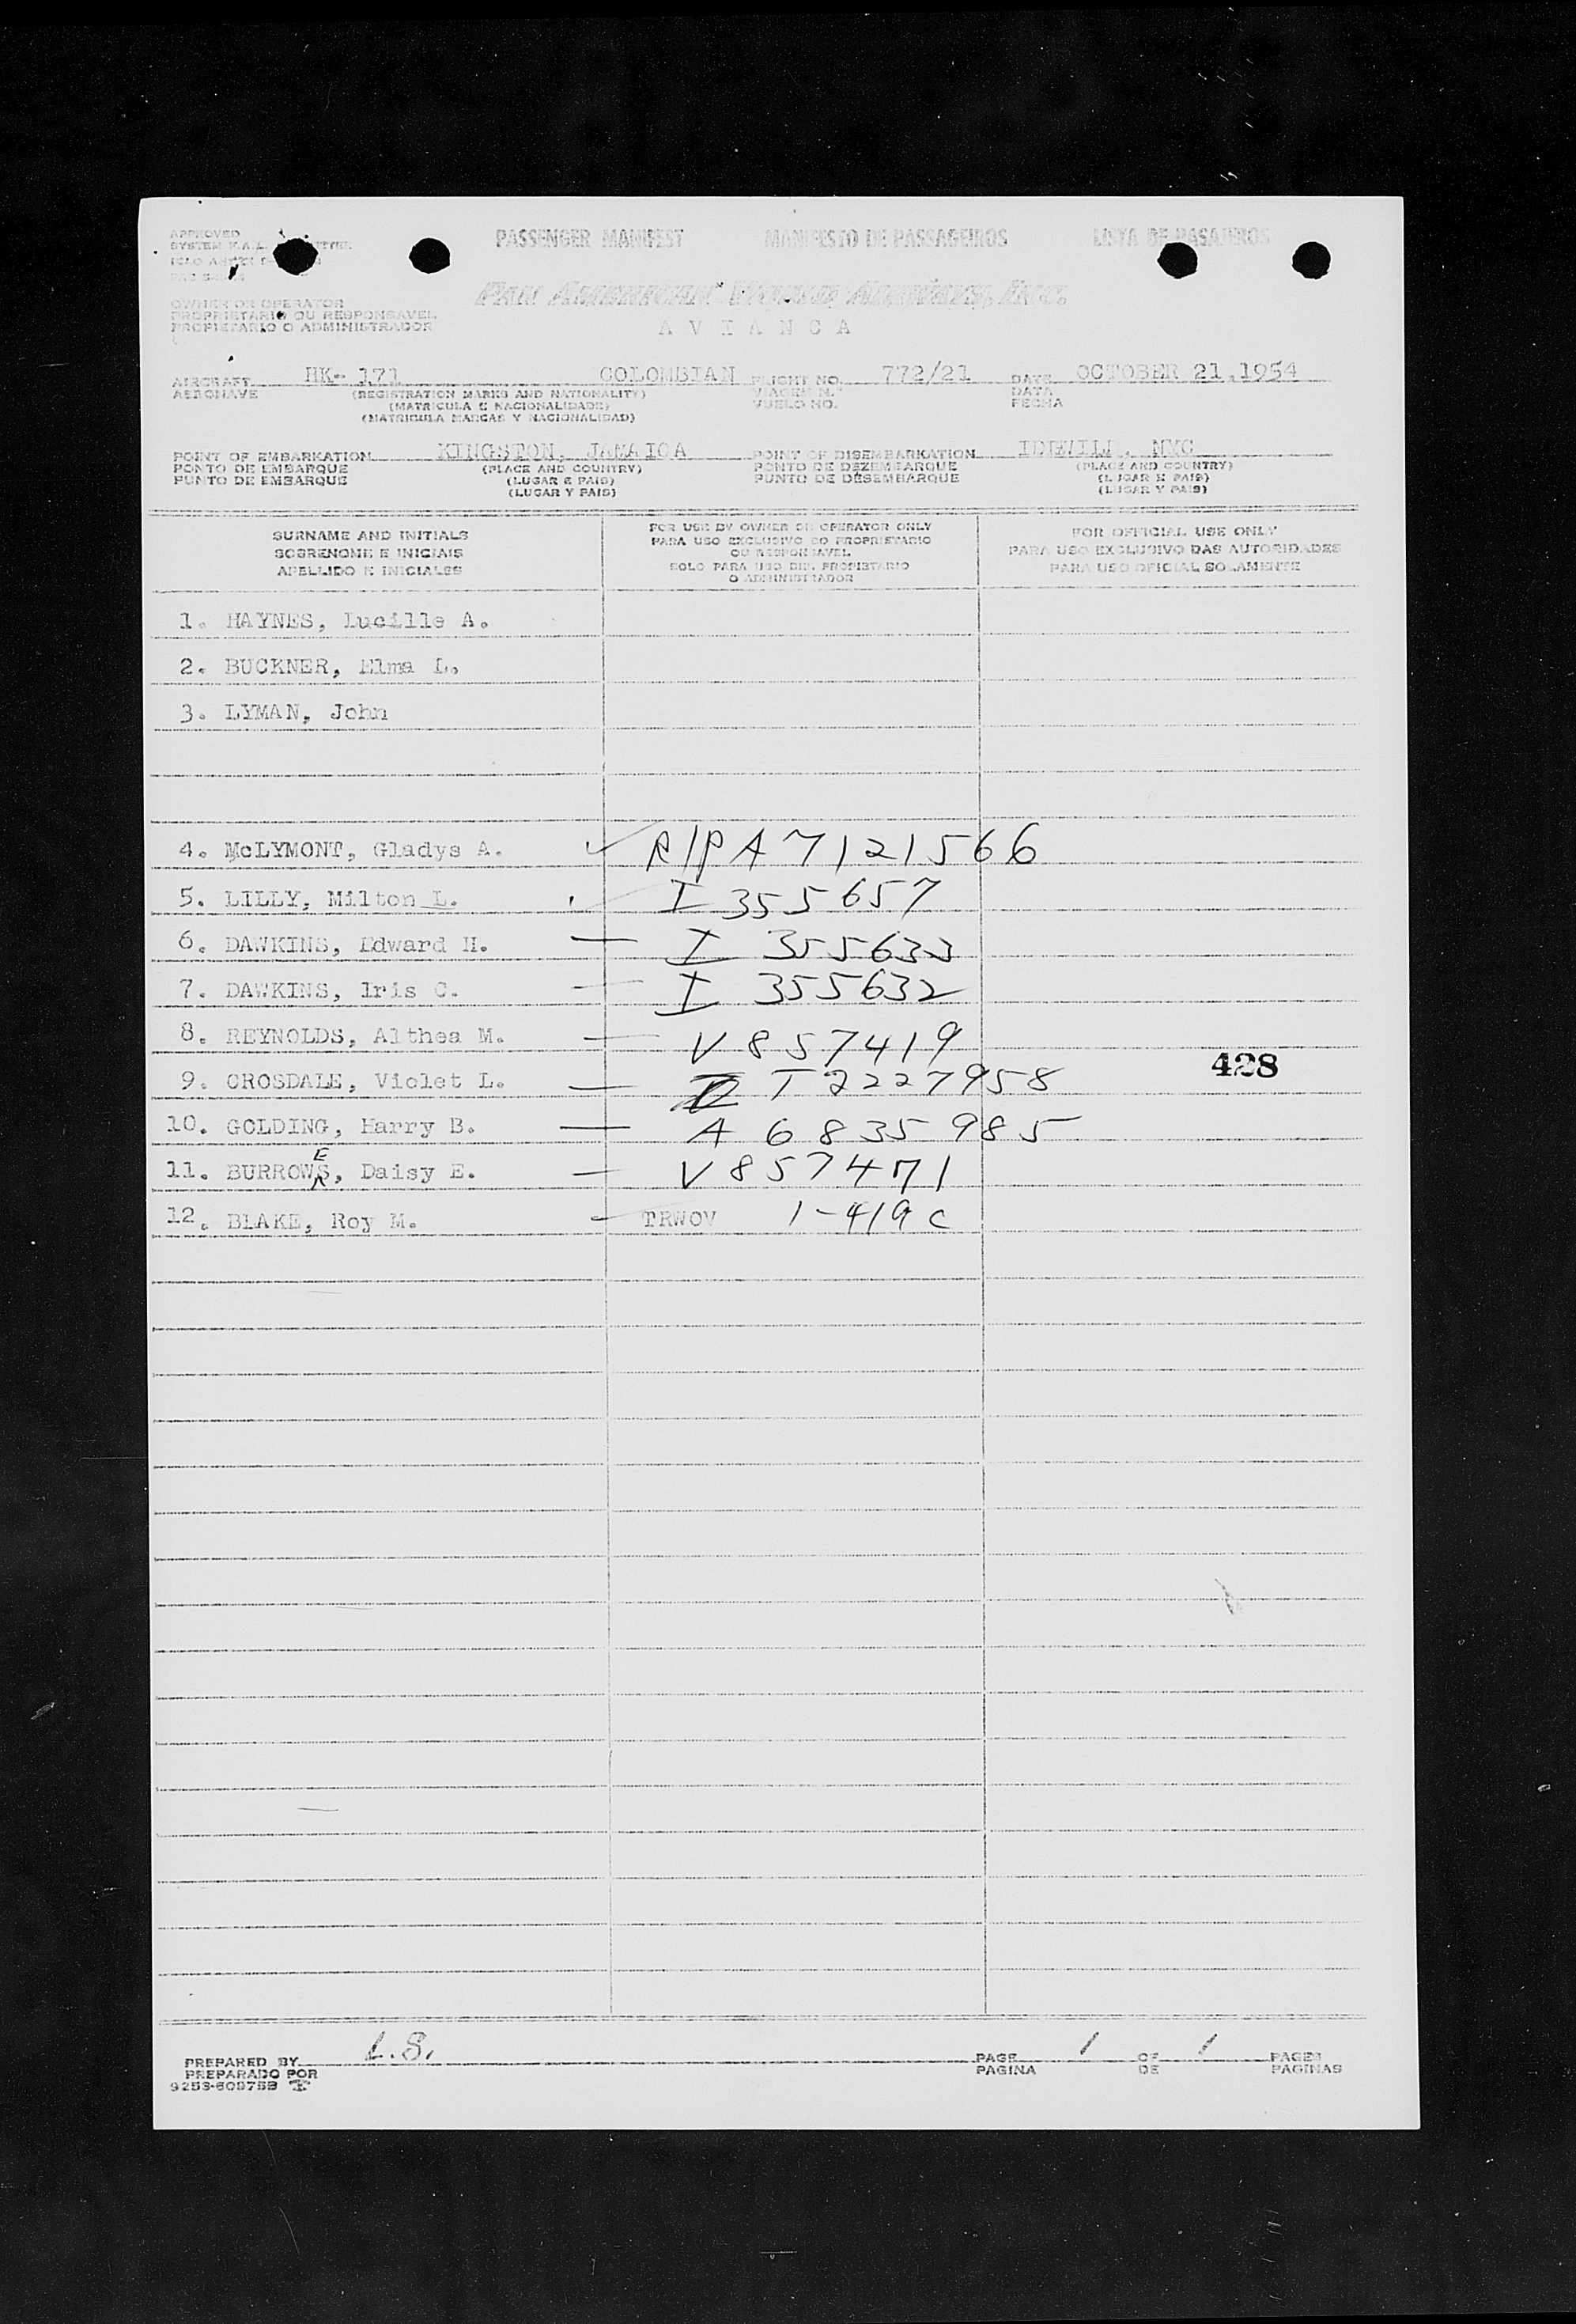 APPROVED
PASSENGER MANIFEST MANIFESTO DE PASSAGEIROS LISTA DE PASAJEROS
SYSTEM
PAN AMERICAN WORLD AIRWAYS, INC.
OWNER OR OPERATOR
PROPRIETARIO OU RESPONSAVEL
PROPIETARIO O ADMINISTRADOR
AVIANCA
AIRCRAFT HK- 171 COLOMBIAN FLIGHT NO. 772/21 DATE OCTOBER 21,1954
AERONAVE (REGISTRATION MARKS AND NATIONALITY) VIAGEM N.º DATA
(MATRICULA E NACIONALIDADE) VUELO NO. FECHA
(MATRICULA MARCAS Y NACIONALIDAD)
POINT OF EMBARKATION KINGSTON, JAMAICA POINT OF DISEMBARKATION IDEWILD, NYC
PONTO DE EMBARQUE (PLACE AND COUNTRY) PONTO DE DEZEMBARQUE (PLACE AND COUNTRY)
PUNTO DE EMBARQUE (LUGAR E PAIS) PUNTO DE DESEMBARQUE (LUGAR E PAIS)
(LUGAR Y PAIS) (LUGAR Y PAIS)
SURNAME AND INITIALS FOR USE BY OWNER OR OPERATOR ONLY FOR OFFICIAL USE ONLY
SOBRENOME E INICIAIS PARA USO EXCLUSIVO DO PROPRIETARIO PARA USO EXCLUSIVO DAS AUTORIDADES
OU RESPONSAVEL
APELLIDO E INICIALES SOLO PARA USO DEL PROPIETARIO PARA USO OFICIAL SOLAMENTE
O ADMINISTRADOR
1. HAYNES, Lucille A.
2. BUCKNER, Elma L.
3. LYMAN, John
4. McLYMONT, Gladys A. R/P A7121566
5. LILLY, Milton L. I 355657
6. DAWKINS, Edward H. I 355633
7. DAWKINS, Iris C. I 355632
8. REYNOLDS, Althea M. V 857419
428
9. CROSDALE, Violet L. T 2227958
10. GOLDING, Harry B. A 6835985
E
11. BURROWS, Daisy E. V 857471
12. BLAKE, Roy M. TRWOV 1-419 c
L.S.
PREPARED BY PAGE 1 OF 1 PAGES
PREPARADO POR PAGINA DE PAGINAS